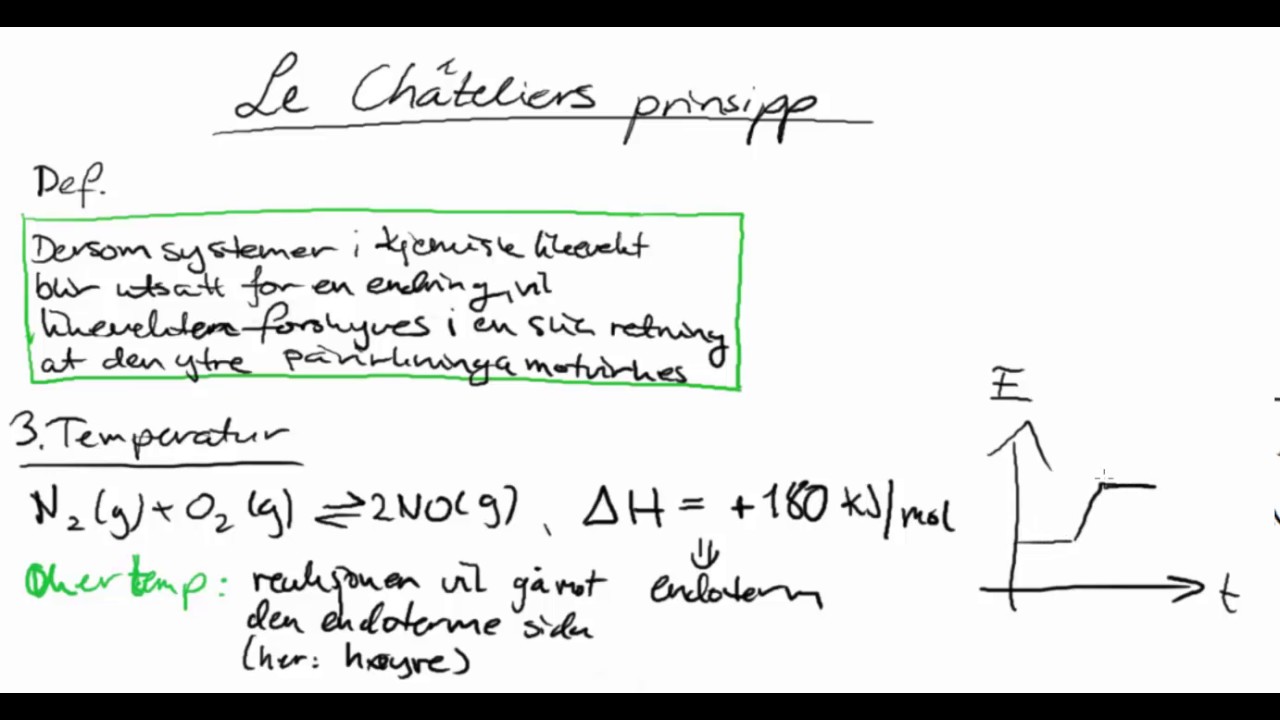 Le Châteliers prinsipp
Def.
Dersom systemer i kjemisk likevekt
blir utsatt for en endring, vil
likevekten forskyves i en slik retning
at den ytre påvirkninga motvirkes
3. Temperatur
N₂(g) + O₂(g) ⇌ 2NO(g), ΔH = +180 kJ/mol
⇓
Øker temp: reaksjonen vil gå mot endoterm
den endoterme siden
(her: høyre)
E
t